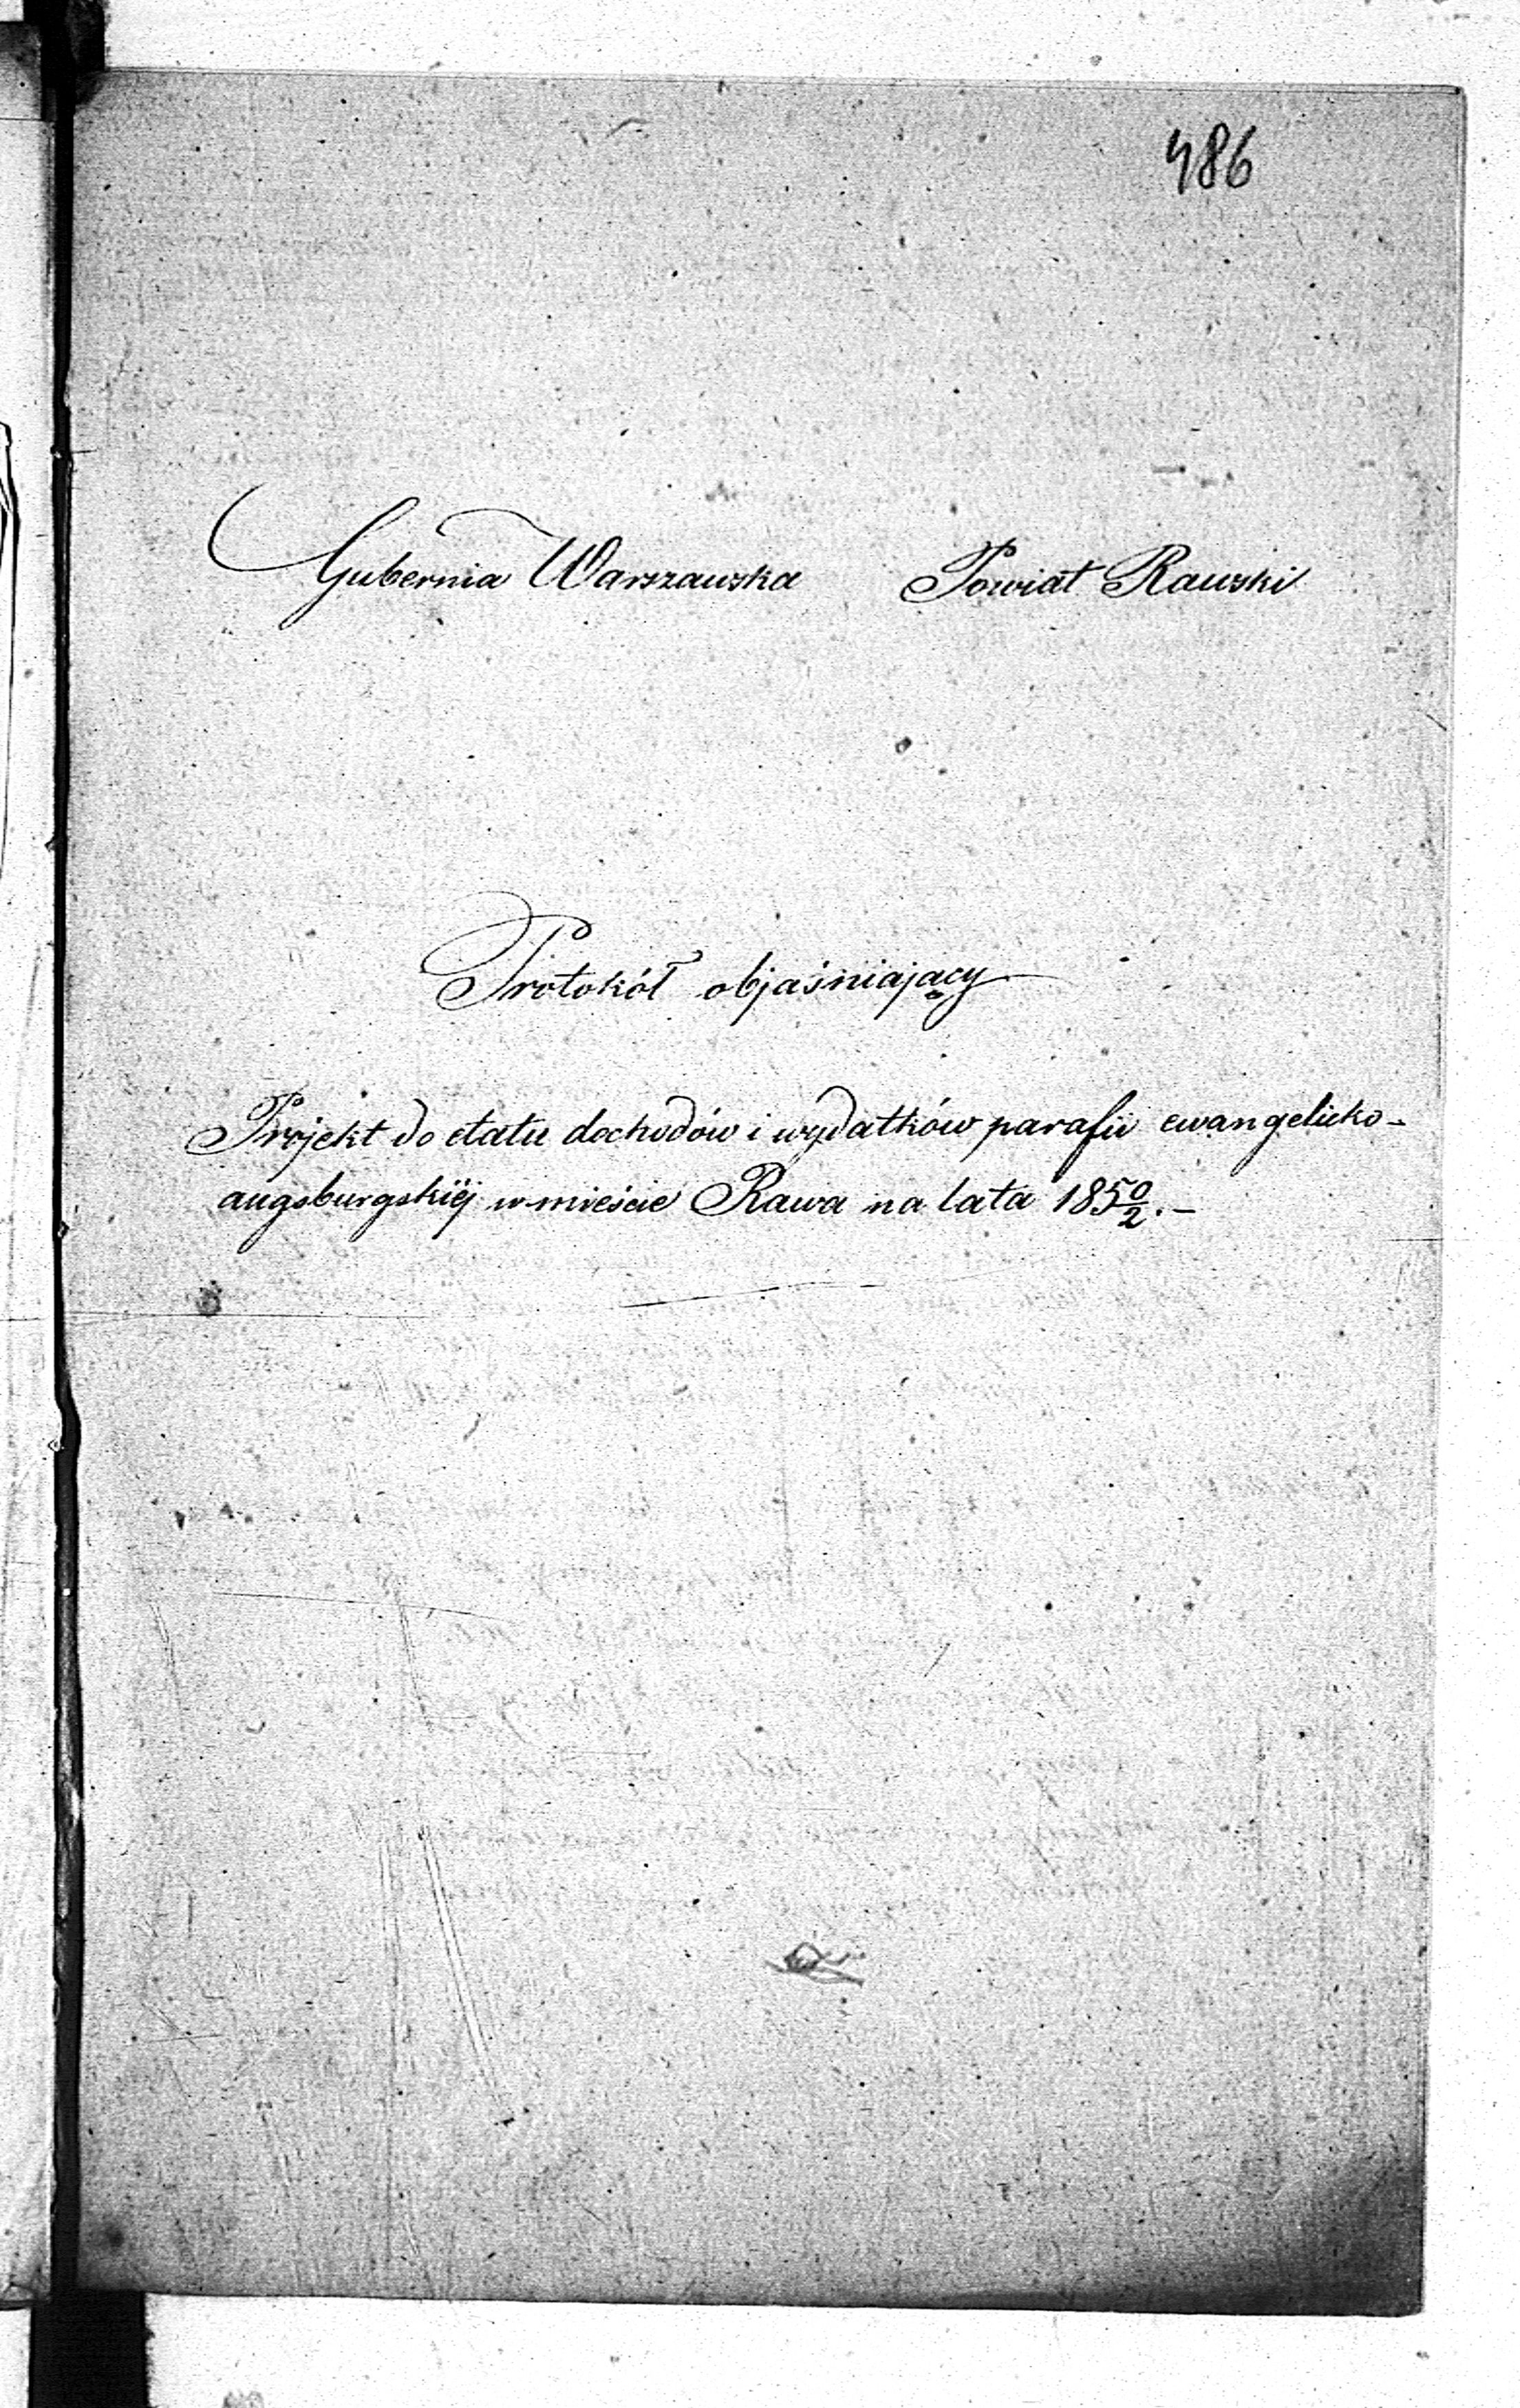 486
Gubernia Warszawska Powiat Rawski
Protokół objaśniający
Projekt do etatu dochodów i wydatków parafii ewangelicko-
augsburgskiéj w mieście Rawa na lata 185 0/2.-